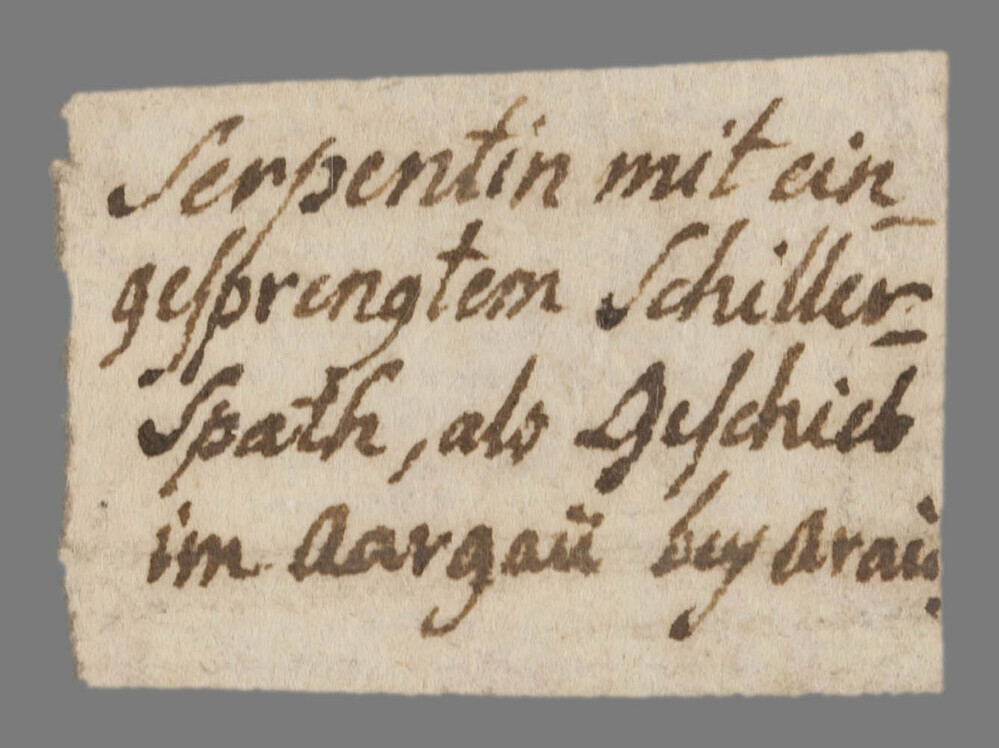 Serpentin mit ein-
gesprengtem Schiller-
Spath, als Geschieb
im Aargau bey Arau.